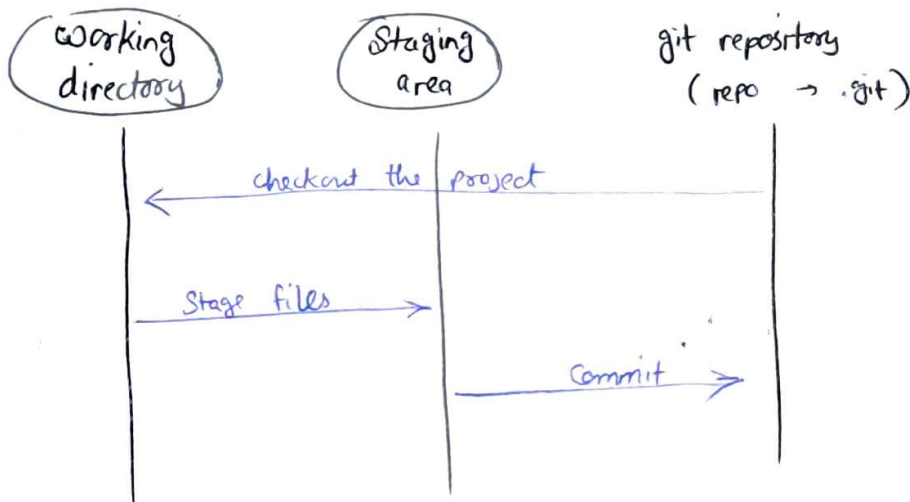 working
directory
Staging
area
git repository
(repo → .git)
checkout the project
Stage files
Commit